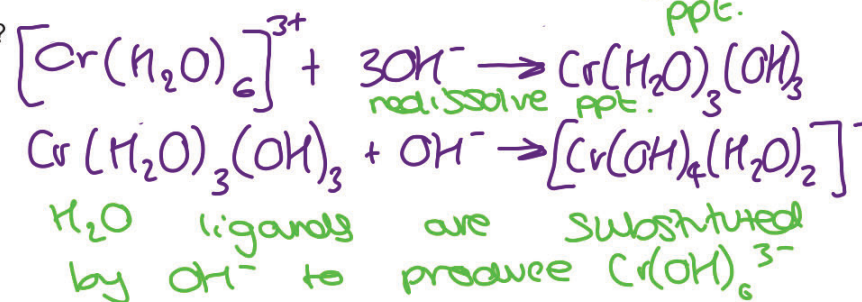 ppt.
? [Cr(H₂O)₆]³⁺ + 3OH⁻ → Cr(H₂O)₃(OH)₃
redissolve ppt.
Cr(H₂O)₃(OH)₃ + OH⁻ → [Cr(OH)₄(H₂O)₂]⁻
H₂O ligands are substituted
by OH⁻ to produce Cr(OH)₆³⁻